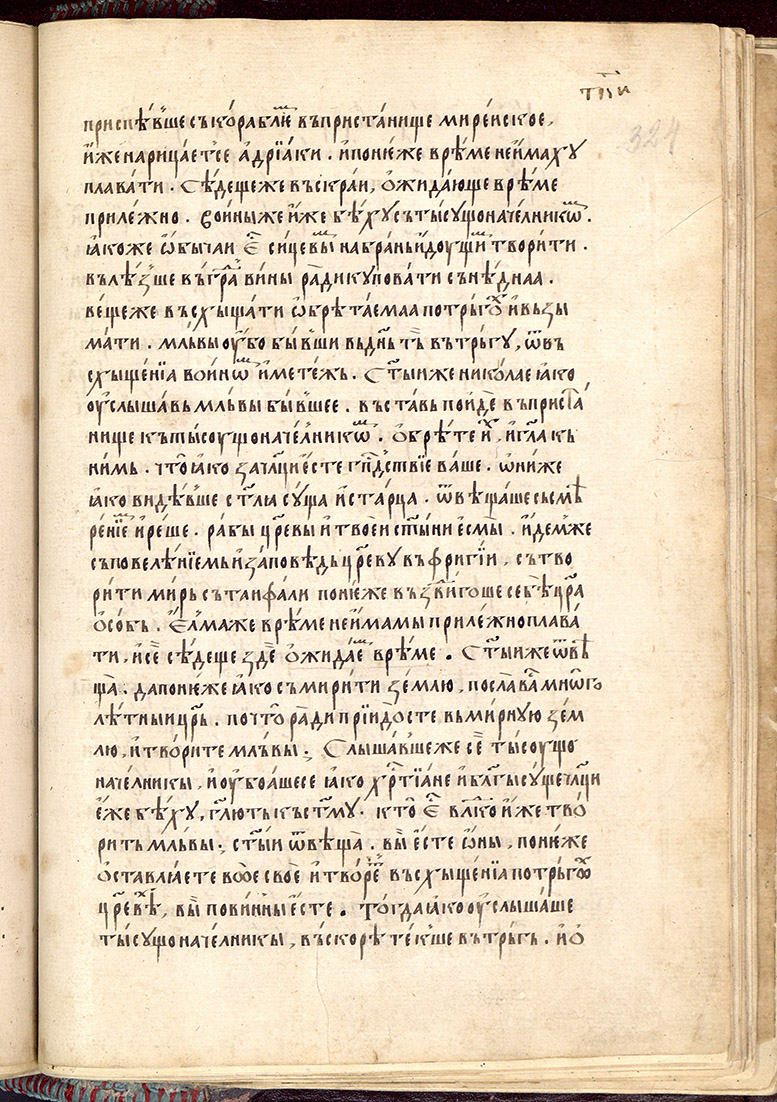 тк҃и
324
приспѣ́вше съкораблїе въпристанище мирейское,
и҆же нарицает̾се а҆дрїа́ки. и҆понѥже врѣме неи҆маху
плава́ти. Сѣдеще же въскраи, ѻ҆жидающе врѣме
прилѣжно. войныже и҆же бѣху сътысущоначелникѡⷨ.
ꙗ҆коже ѡ҆бычаи е҆ⷭ҇ сицевыⷨ набрань и҆доущиⷨ творити.
вълѣз̾ше въгрⷣа҇ вины ради куповати сънѣднаа.
веще же въсхыщати ѡ҆брѣтаемаа потрьгѹⷯ и҆възы
мати. мльвы оу҆бо бывши вьднь тъ вътрьгу, ѿ въ
схыщенїа воинѡⷨ и҆метежь. Ст҃ыиже николае ꙗ҆ко
оу҆слышавь мльвы бывшее. въставь поиде въприста
нище кътысоущоначелникѡⷨ. ѻ҆брѣте иⷯ, и҆гл҃а къ
нимь. что ꙗ҆ко зачали ѥсте гпⷭ҇дствїе ваше. ѡ҆ниже
ꙗ҆ко видѣвше ст҃ля суща и҆ старца. ѿвѣщаше сьсмѣ
ренїеⷨ и҆реше. рабы цр҃евы и҆ твоеи ст҃ыни ѥсмы. и҆демже
съповелѣнїемь и҆заповѣдь цр҃еву въ фригїи, сътво
рити мирь сътаифали понѥже въздвигоше себѣ цр҃а
ѻ҆собь. Ѥ҆лмаже врѣме неи҆мамы прилѣжно плава
ти, и҆се сѣдеще зде ѻ҆жидаеⷨ врѣме. Ст҃ыиже ѿвѣ
ща. да понѥже ꙗ҆ко съмирити землю, посла васⷭ҇ мнѡго
лѣтныи цр҃ь. почто ради прїидосте вьмирную зем
лю, и҆творите мльвы. Слышавшеже се тысоущо
начелникы, и҆ оу҆боашесе ꙗ҆ко хрⷭ҇тїане и҆ бл҃гы суще чл҃ци
ѥже бѣху, гл҃ють къст҃му. кто е҆ⷭ҇ влⷣко и҆же тво
рить мльвы. ст҃ыи ѿвѣща. вы ѥсте ѡ҆ны, понѥже
ѻ҆ставлꙗ҆ете вое свое и҆ творѥⷮ въсхыщенїа потрьгѹⷯ
цр҃евѣⷯ, вы повинны ѥсте. Тогда ꙗ҆ко оу҆слышаше
тысущоначелникы, въскорѣ текше вътрьгь. и҆ ѻ҆